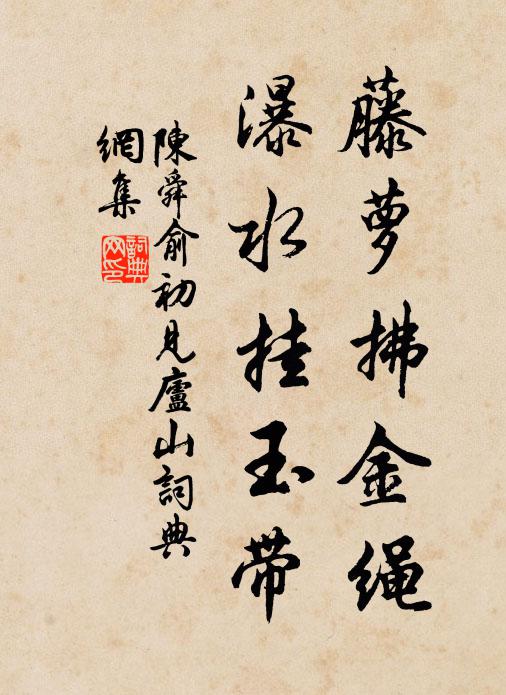 藤萝拂金绳
瀑水挂玉带
陳舜俞初見廬山詞典
網集
詞典
网印